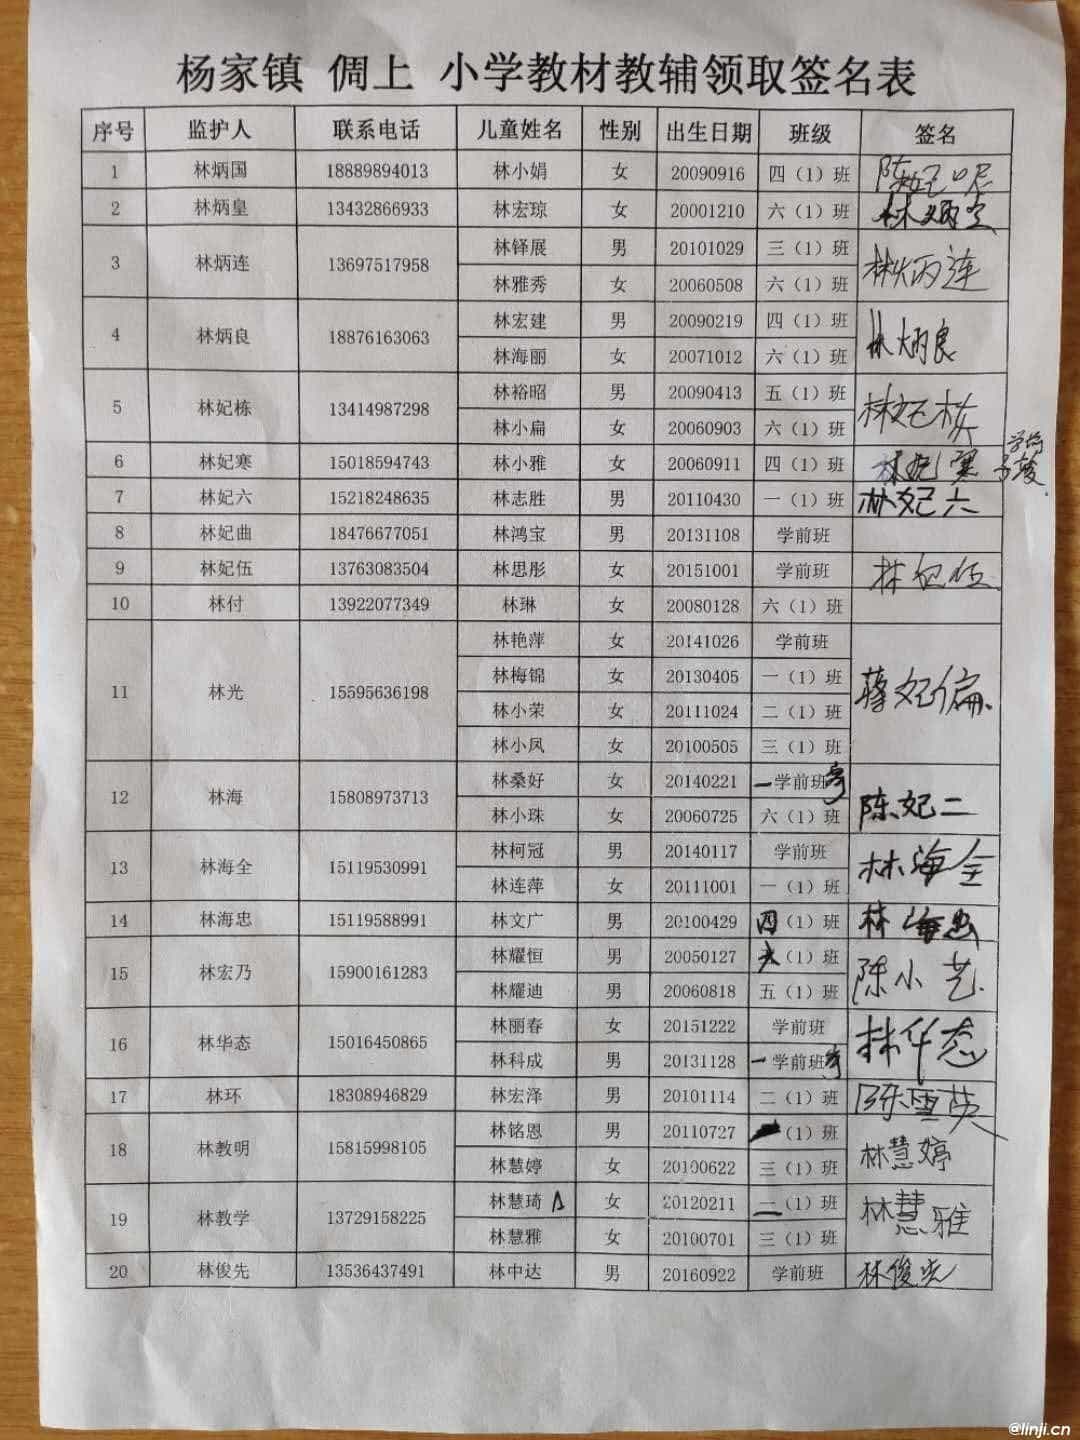 杨家镇 倜上 小学教材教辅领取签名表
序号 监护人 联系电话 儿童姓名 性别 出生日期 班级 签名
1 林炳国 18889894013 林小娟 女 20090916 四（1）班
2 林炳皇 13432866933 林宏琼 女 20001210 六（1）班
3 林炳连 13697517958 林铎展 男 20101029 三（1）班 林炳连
林雅秀 女 20060508 六（1）班
4 林炳良 18876163063 林宏建 男 20090219 四（1）班 林炳良
林海丽 女 20071012 六（1）班
5 林妃栋 13414987298 林裕昭 男 20090413 五（1）班 林妃栋
林小扁 女 20060903 六（1）班
6 林妃寒 15018594743 林小雅 女 20060911 四（1）班 林妃寒
7 林妃六 15218248635 林志胜 男 20110430 一（1）班 林妃六
8 林妃曲 18476677051 林鸿宝 男 20131108 学前班
9 林妃伍 13763083504 林思彤 女 20151001 学前班 林妃伍
10 林付 13922077349 林琳 女 20080128 六（1）班
11 林光 15595636198 林艳萍 女 20141026 学前班 蒋妃偏
林梅锦 女 20130405 一（1）班
林小荣 女 20111024 二（1）班
林小凤 女 20100505 三（1）班
12 林海 15808973713 林桑好 女 20140221 一学前班 陈妃二
林小珠 女 20060725 六（1）班
13 林海全 15119530991 林柯冠 男 20140117 学前班 林海全
林连萍 女 20111001 一（1）班
14 林海忠 15119588991 林文广 男 20100429 四（1）班 林海忠
15 林宏乃 15900161283 林耀恒 男 20050127 六（1）班 陈小艺
林耀迪 男 20060818 五（1）班
16 林华态 15016450865 林丽春 女 20151222 学前班 林华态
林科成 男 20131128 一学前班
17 林环 18308946829 林宏泽 男 20101114 二（1）班 陈雪英
18 林教明 15815998105 林铭恩 男 20110727 （1）班 林慧婷
林慧婷 女 20100622 三（1）班
19 林教学 13729158225 林慧琦 △ 女 20120211 二（1）班 林慧雅
林慧雅 女 20100701 三（1）班
20 林俊先 13536437491 林中达 男 20160922 学前班 林俊先
@linji.cn